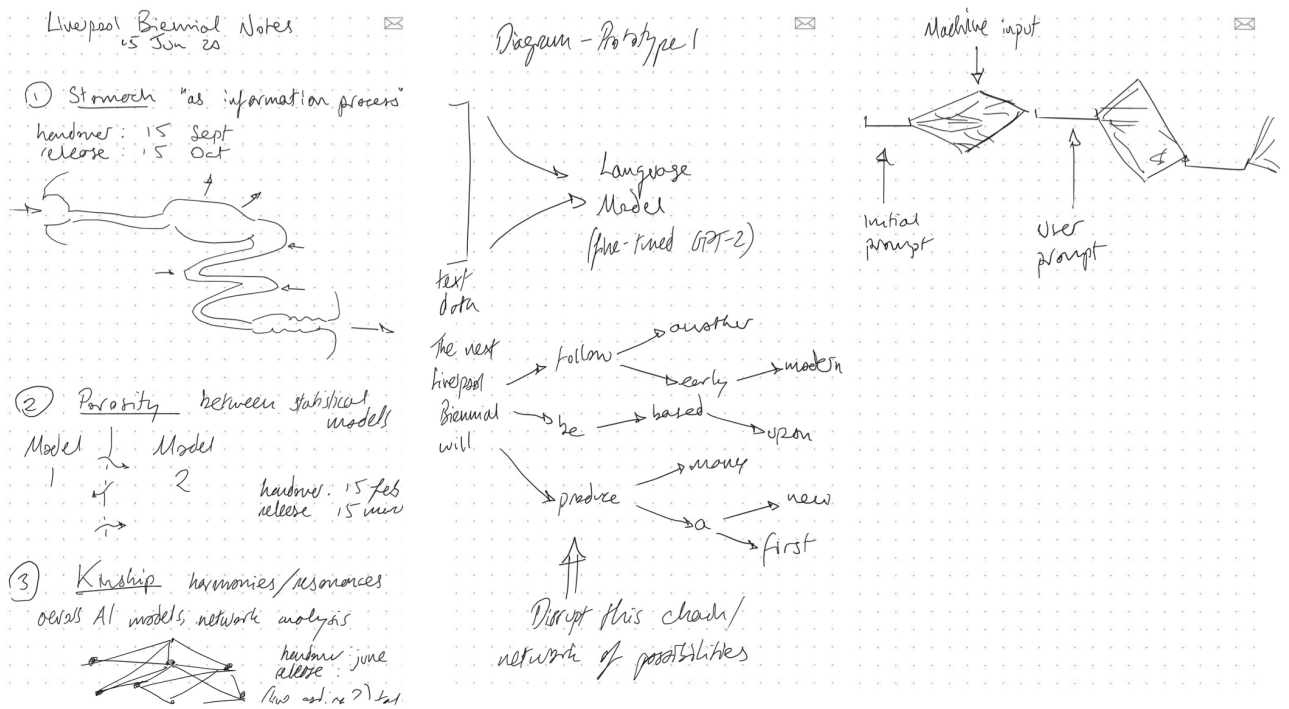 Liverpool Biennial Notes
15 Jun 20
1 Stomach "as information process"
handover: 15 Sept
release: 15 Oct
2 Porosity between statistical
models
Model Model
1 2
handover: 15 feb
release 15 mar
3 Kinship harmonies/resonances
across AI models, network analysis
handover june
release:
Diagram - Prototype 1
Language
Model
(fine-tuned GPT-2)
text
data
The next
Liverpool
Biennial
will
follow
another
early
modern
be
based
upon
produce
many
a
new
first
Disrupt this chain/
network of possibilities
Machine input
Initial
prompt
User
prompt